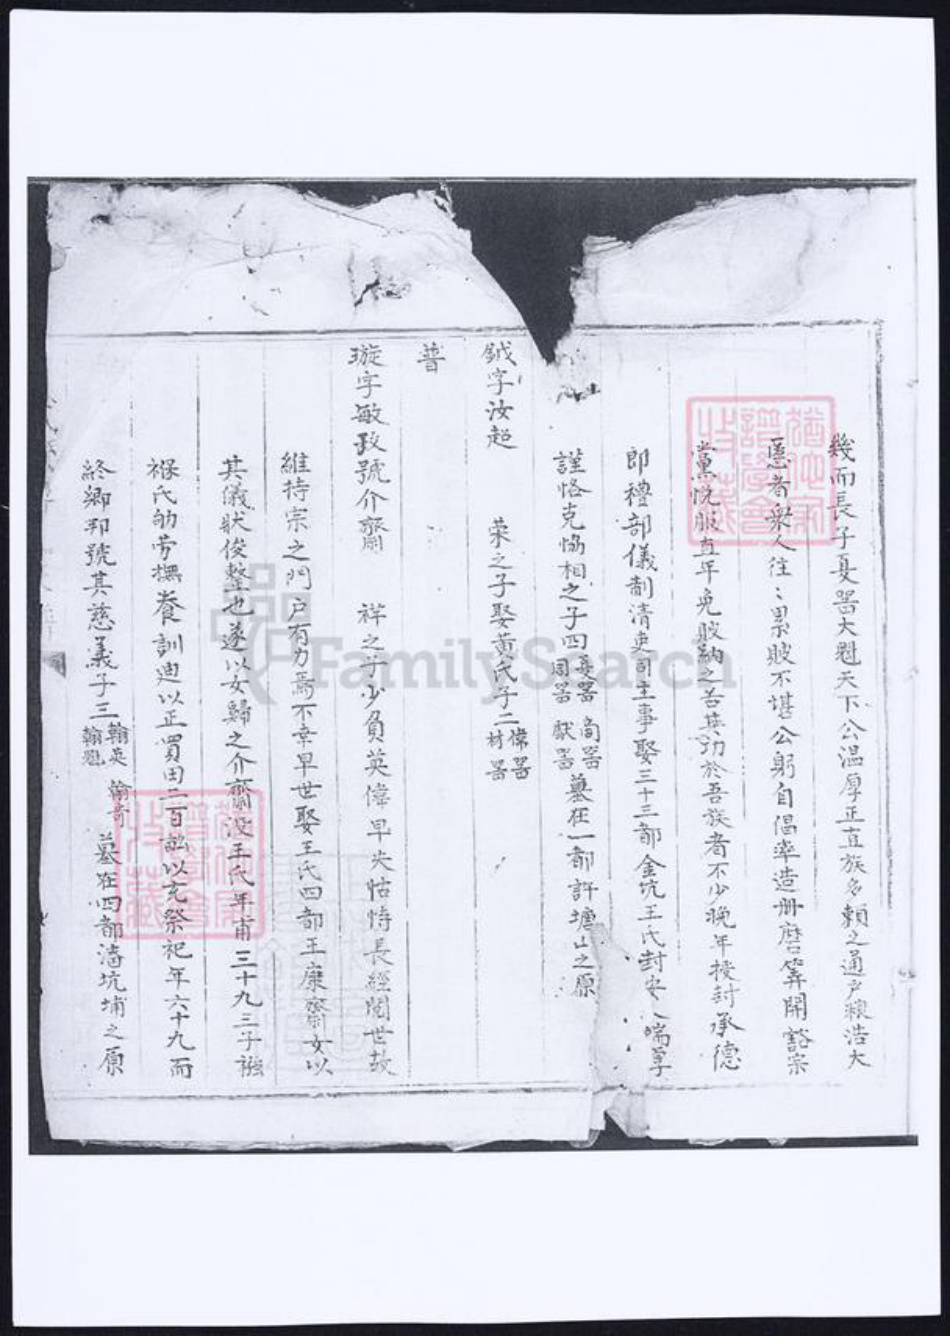 幾而長子夏器大魁天下公溫厚正直族多賴之通户糧浩大
慝者衆人往〻累賠不堪公躬自倡率造册磨筭開豁宗
黨悅服直年免賠納之苦其功於吾族者不少晚年授封承德
郎禮部儀制清吏司主事娶三十三都金坑王氏封安人端享
謹恪克恊相之子四夏器 尚器 周器 獻器 墓在一都許塘山之原
鉞字汝超 榮之子娶黃氏子二偉器 材器
普
璇字敏政號介齋 祥之子少負英偉早失怙恃長經閱世故
維持宗之門户有力焉不幸早世娶王氏四都王康齋女以
其儀狀俊整也遂以女歸之介齋沒王氏年甫三十九三子襁
褓氏劬勞撫養訓迪以正買田二百畝以充祭祀年六十九而
終鄉邦號其慈義子三翰英 翰魁 翰奇 墓在四都濤坑埔之原
FamilySearch